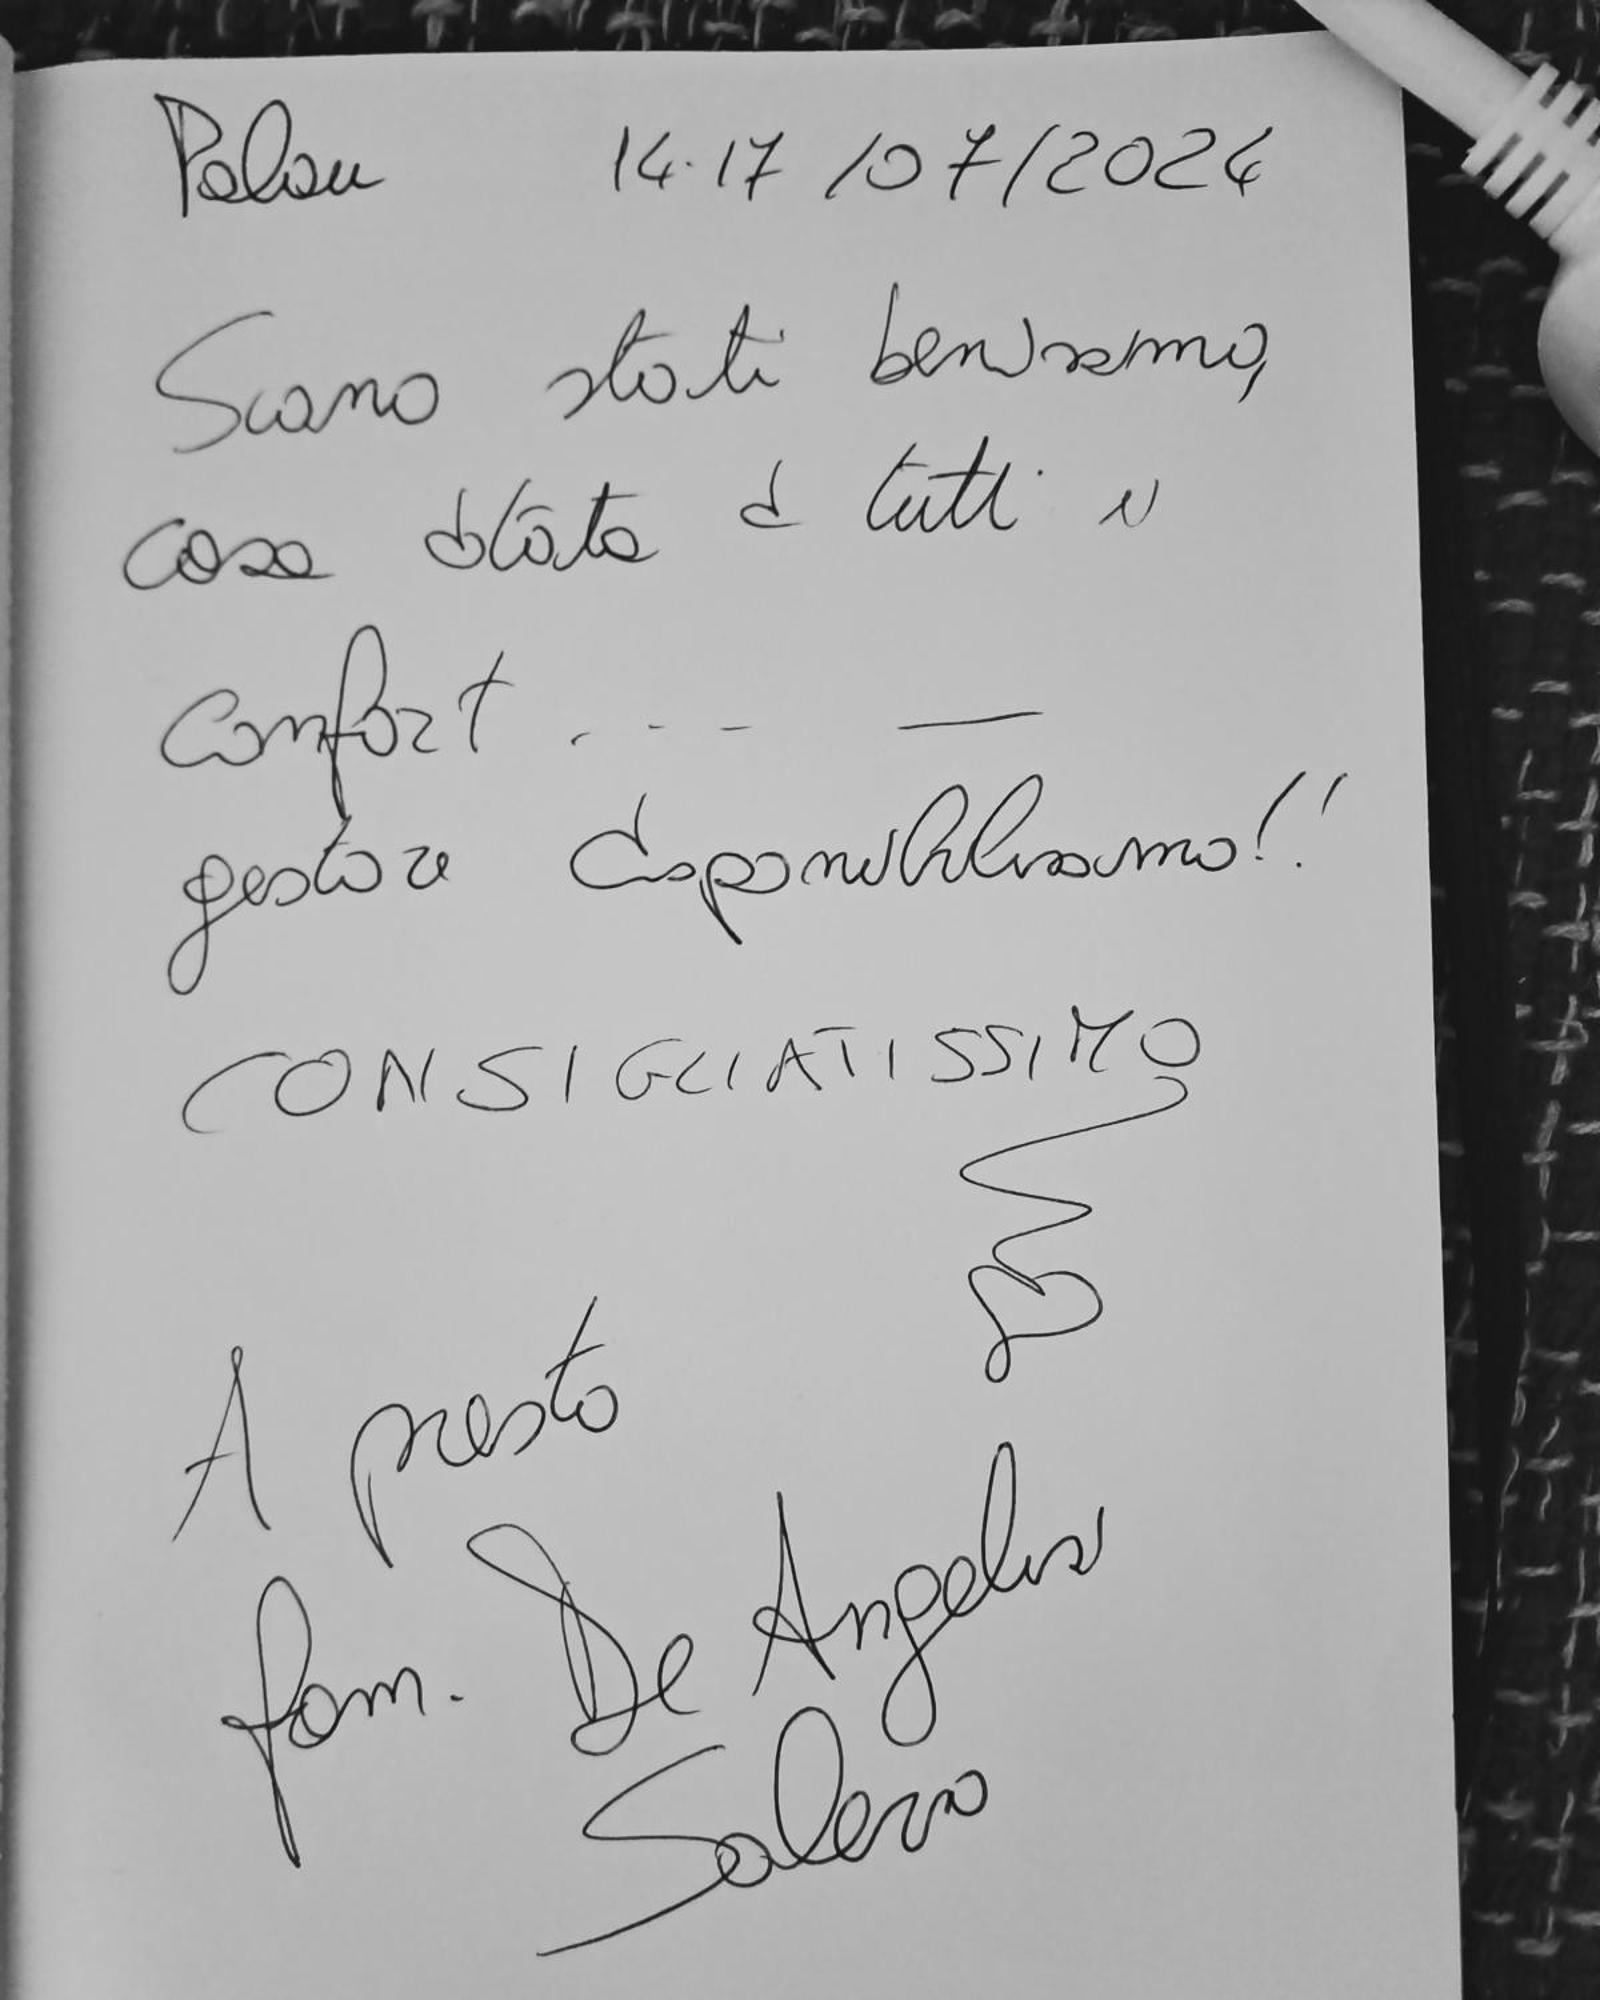 Palau 14-17/07/2024
Siamo stati benissimo,
casa dotata di tutti i
confort....—
gestore disponibilissimo!!
CONSIGLIATISSIMO
A presto
fam. De Angelis